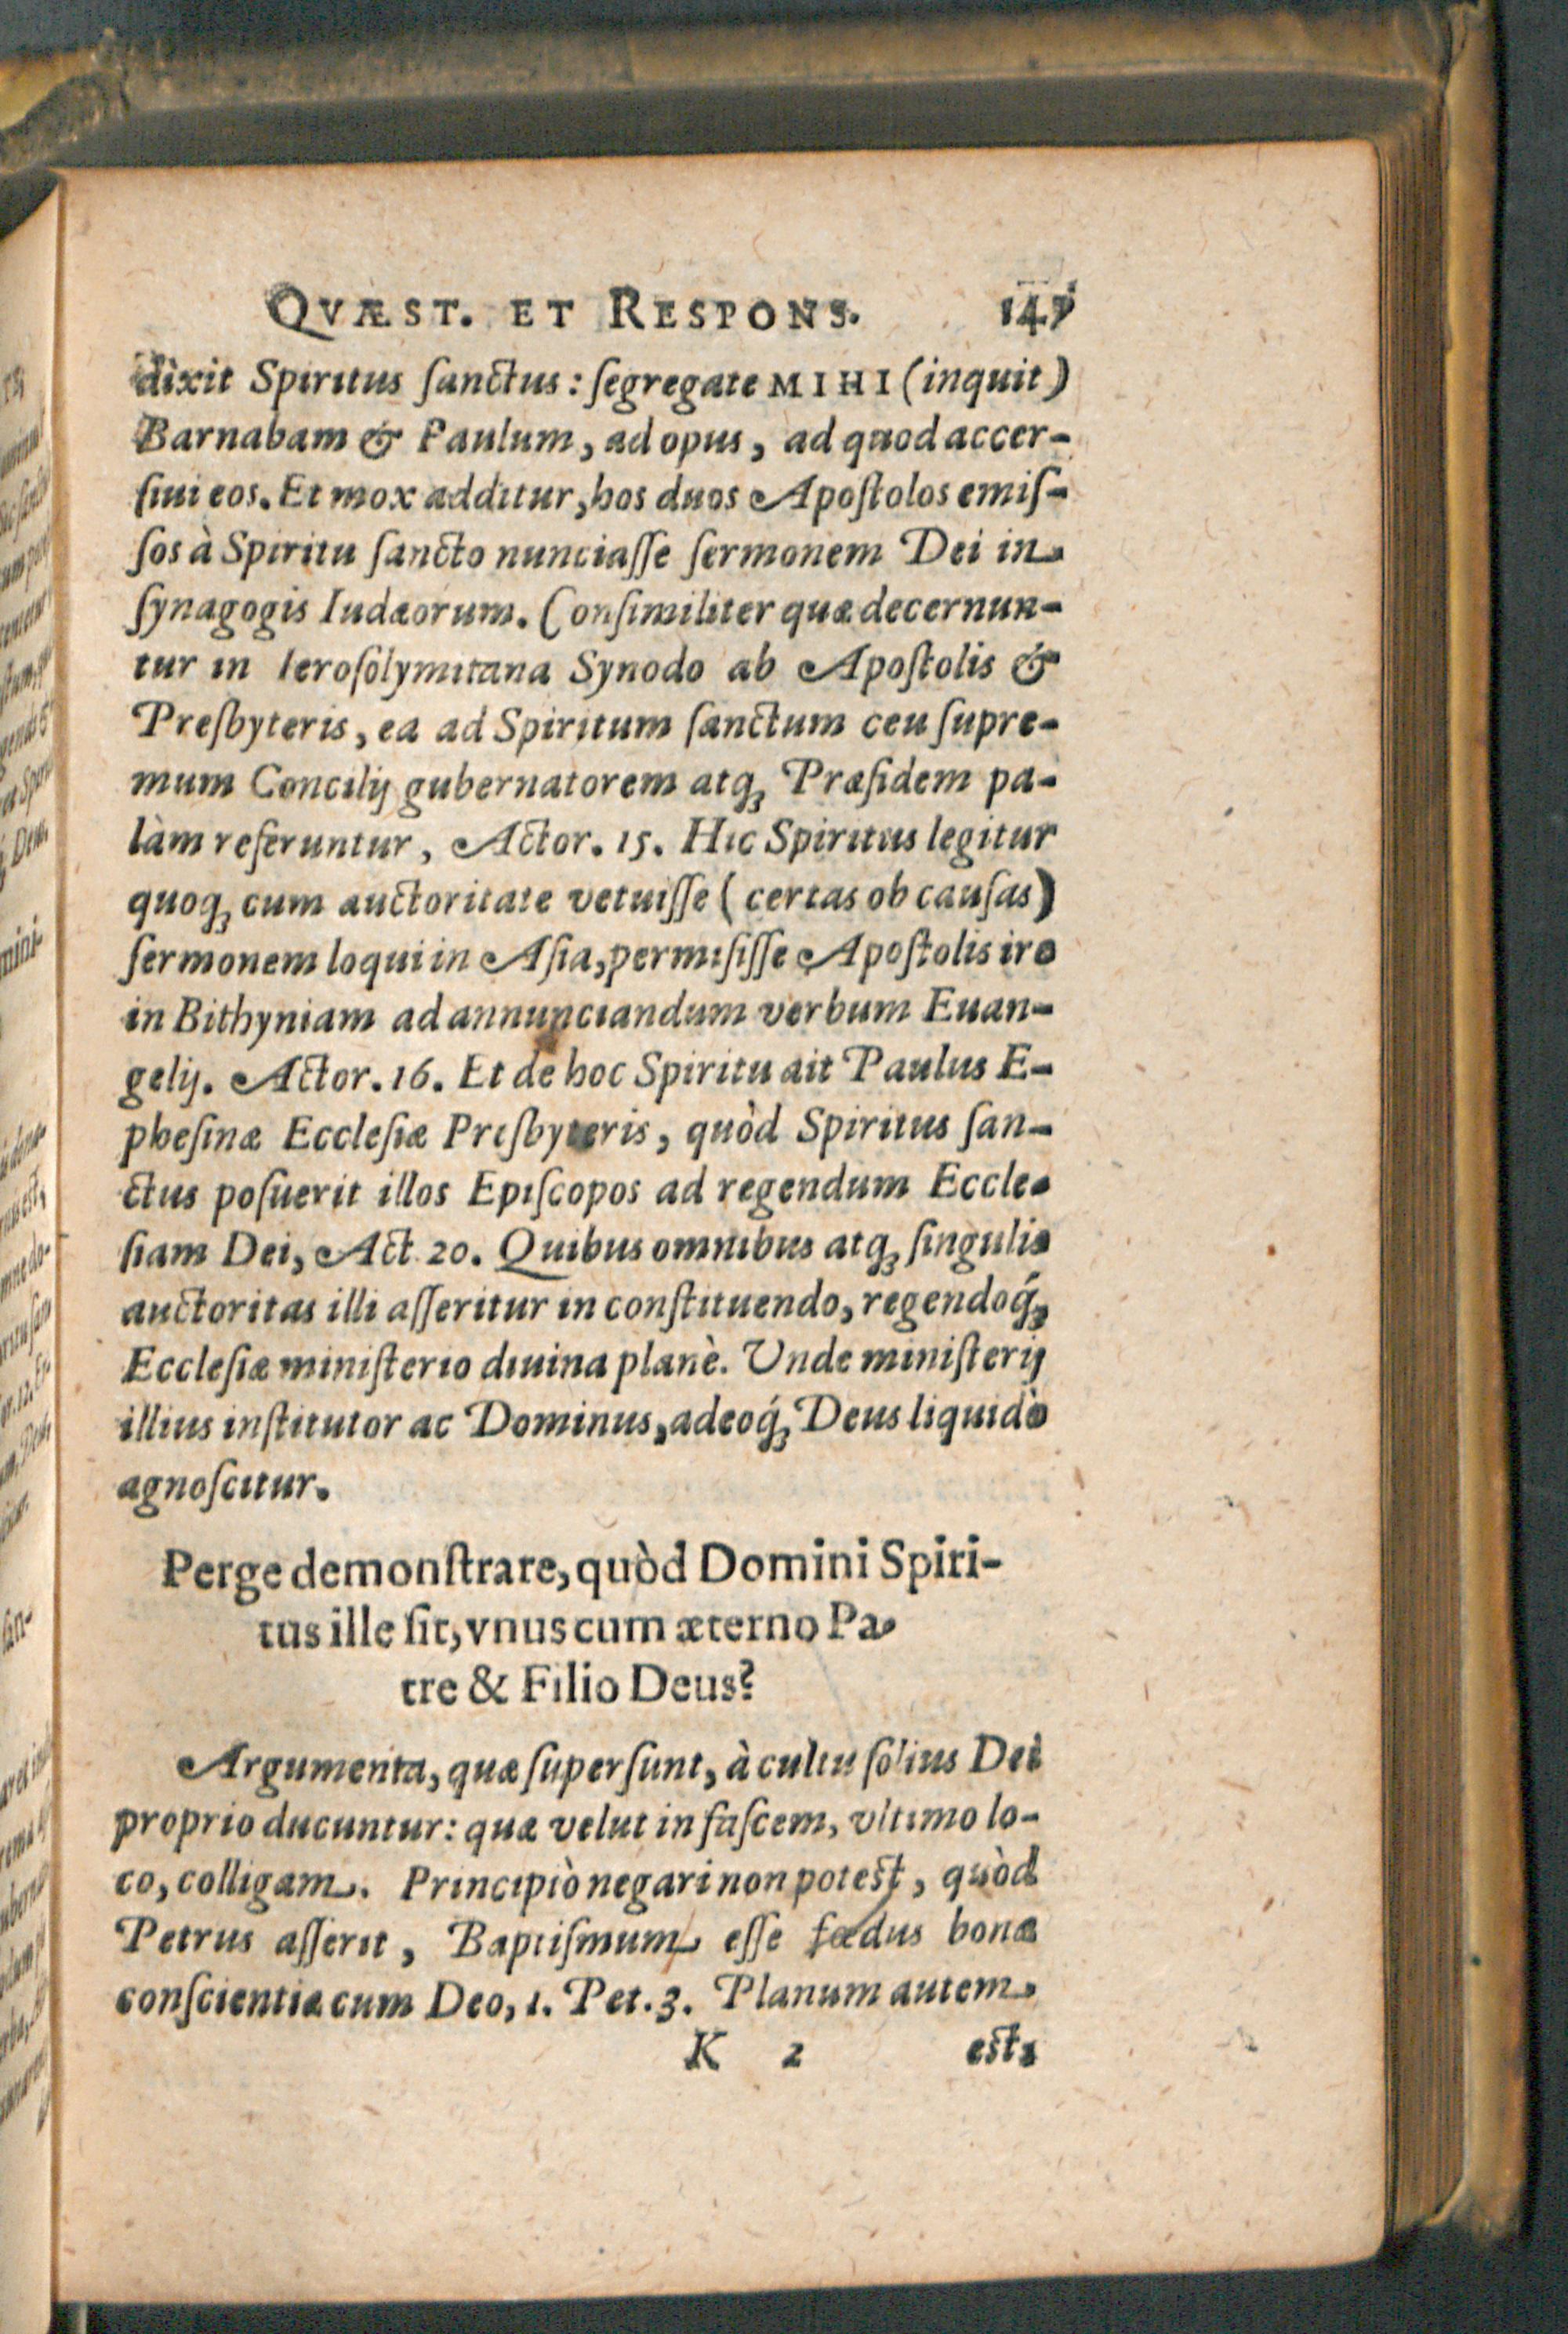 QVÆST. ET RESPONS. 147
dixit Spiritus ſanctus: ſegregate MIHI (inquit)
Barnabam & Paulum, ad opus, ad quod accer-
ſiui eos. Et mox additur, hos duos Apoſtolos emiſ-
ſos à Spiritu ſancto nunciaſſe ſermonem Dei in
ſynagogis Iudæorum. Conſimiliter quæ decernun-
tur in Ieroſolymitana Synodo ab Apoſtolis &
Preſbyteris, ea ad Spiritum ſanctum ceu ſupre-
mum Concilij gubernatorem atq; Præſidem pa-
làm referuntur, Actor. 15. Hic Spiritus legitur
quoq; cum auctoritate vetuiſſe (certas ob cauſas)
ſermonem loqui in Aſia, permiſiſſe Apoſtolis ire
in Bithyniam ad annunciandum verbum Euan-
gelij. Actor. 16. Et de hoc Spiritu ait Paulus E-
pheſinæ Eccleſiæ Preſbyteris, quòd Spiritus ſan-
ctus poſuerit illos Epiſcopos ad regendum Eccle-
ſiam Dei, Act 20. Quibus omnibus atq; ſingulis
auctoritas illi aſſeritur in conſtituendo, regendoq́;
Eccleſiæ miniſterio diuina planè. Unde miniſterij
illius inſtitutor ac Dominus, adeoq́; Deus liquidò
agnoſcitur.
Perge demonſtrare, quòd Domini Spiri-
tus ille ſit, vnus cum æterno Pa-
tre & Filio Deus?
Argumenta, quæ ſuperſunt, à cultu ſolius Dei
proprio ducuntur: quæ velut in faſcem, vltimo lo-
co, colligam. Principiò negari non poteſt, quòd
Petrus aſſerit, Baptiſmum eſſe fœdus bonæ
conſcientiæ cum Deo, 1. Pet. 3. Planum autem
K 2 eſt,